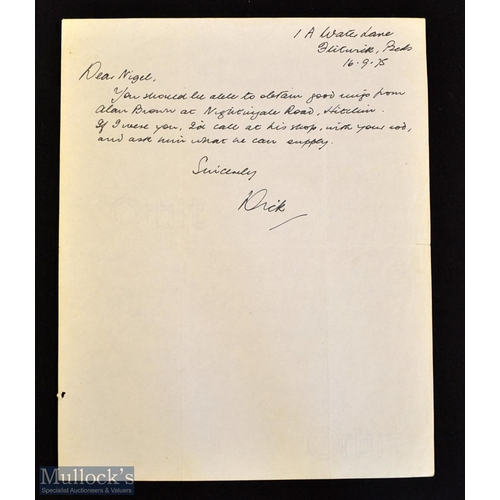 1 A Water Lane
Flitwick, Beds
16-9-75
Dear Nigel,
You should be able to obtain good rings from
Alan Brown at Nightingale Road, Hitchin.
If I were you, I'd call at his shop, with your rod,
and ask him what he can supply.
Sincerely
Dick
Mullock's
Specialist Auctioneers & Valuers